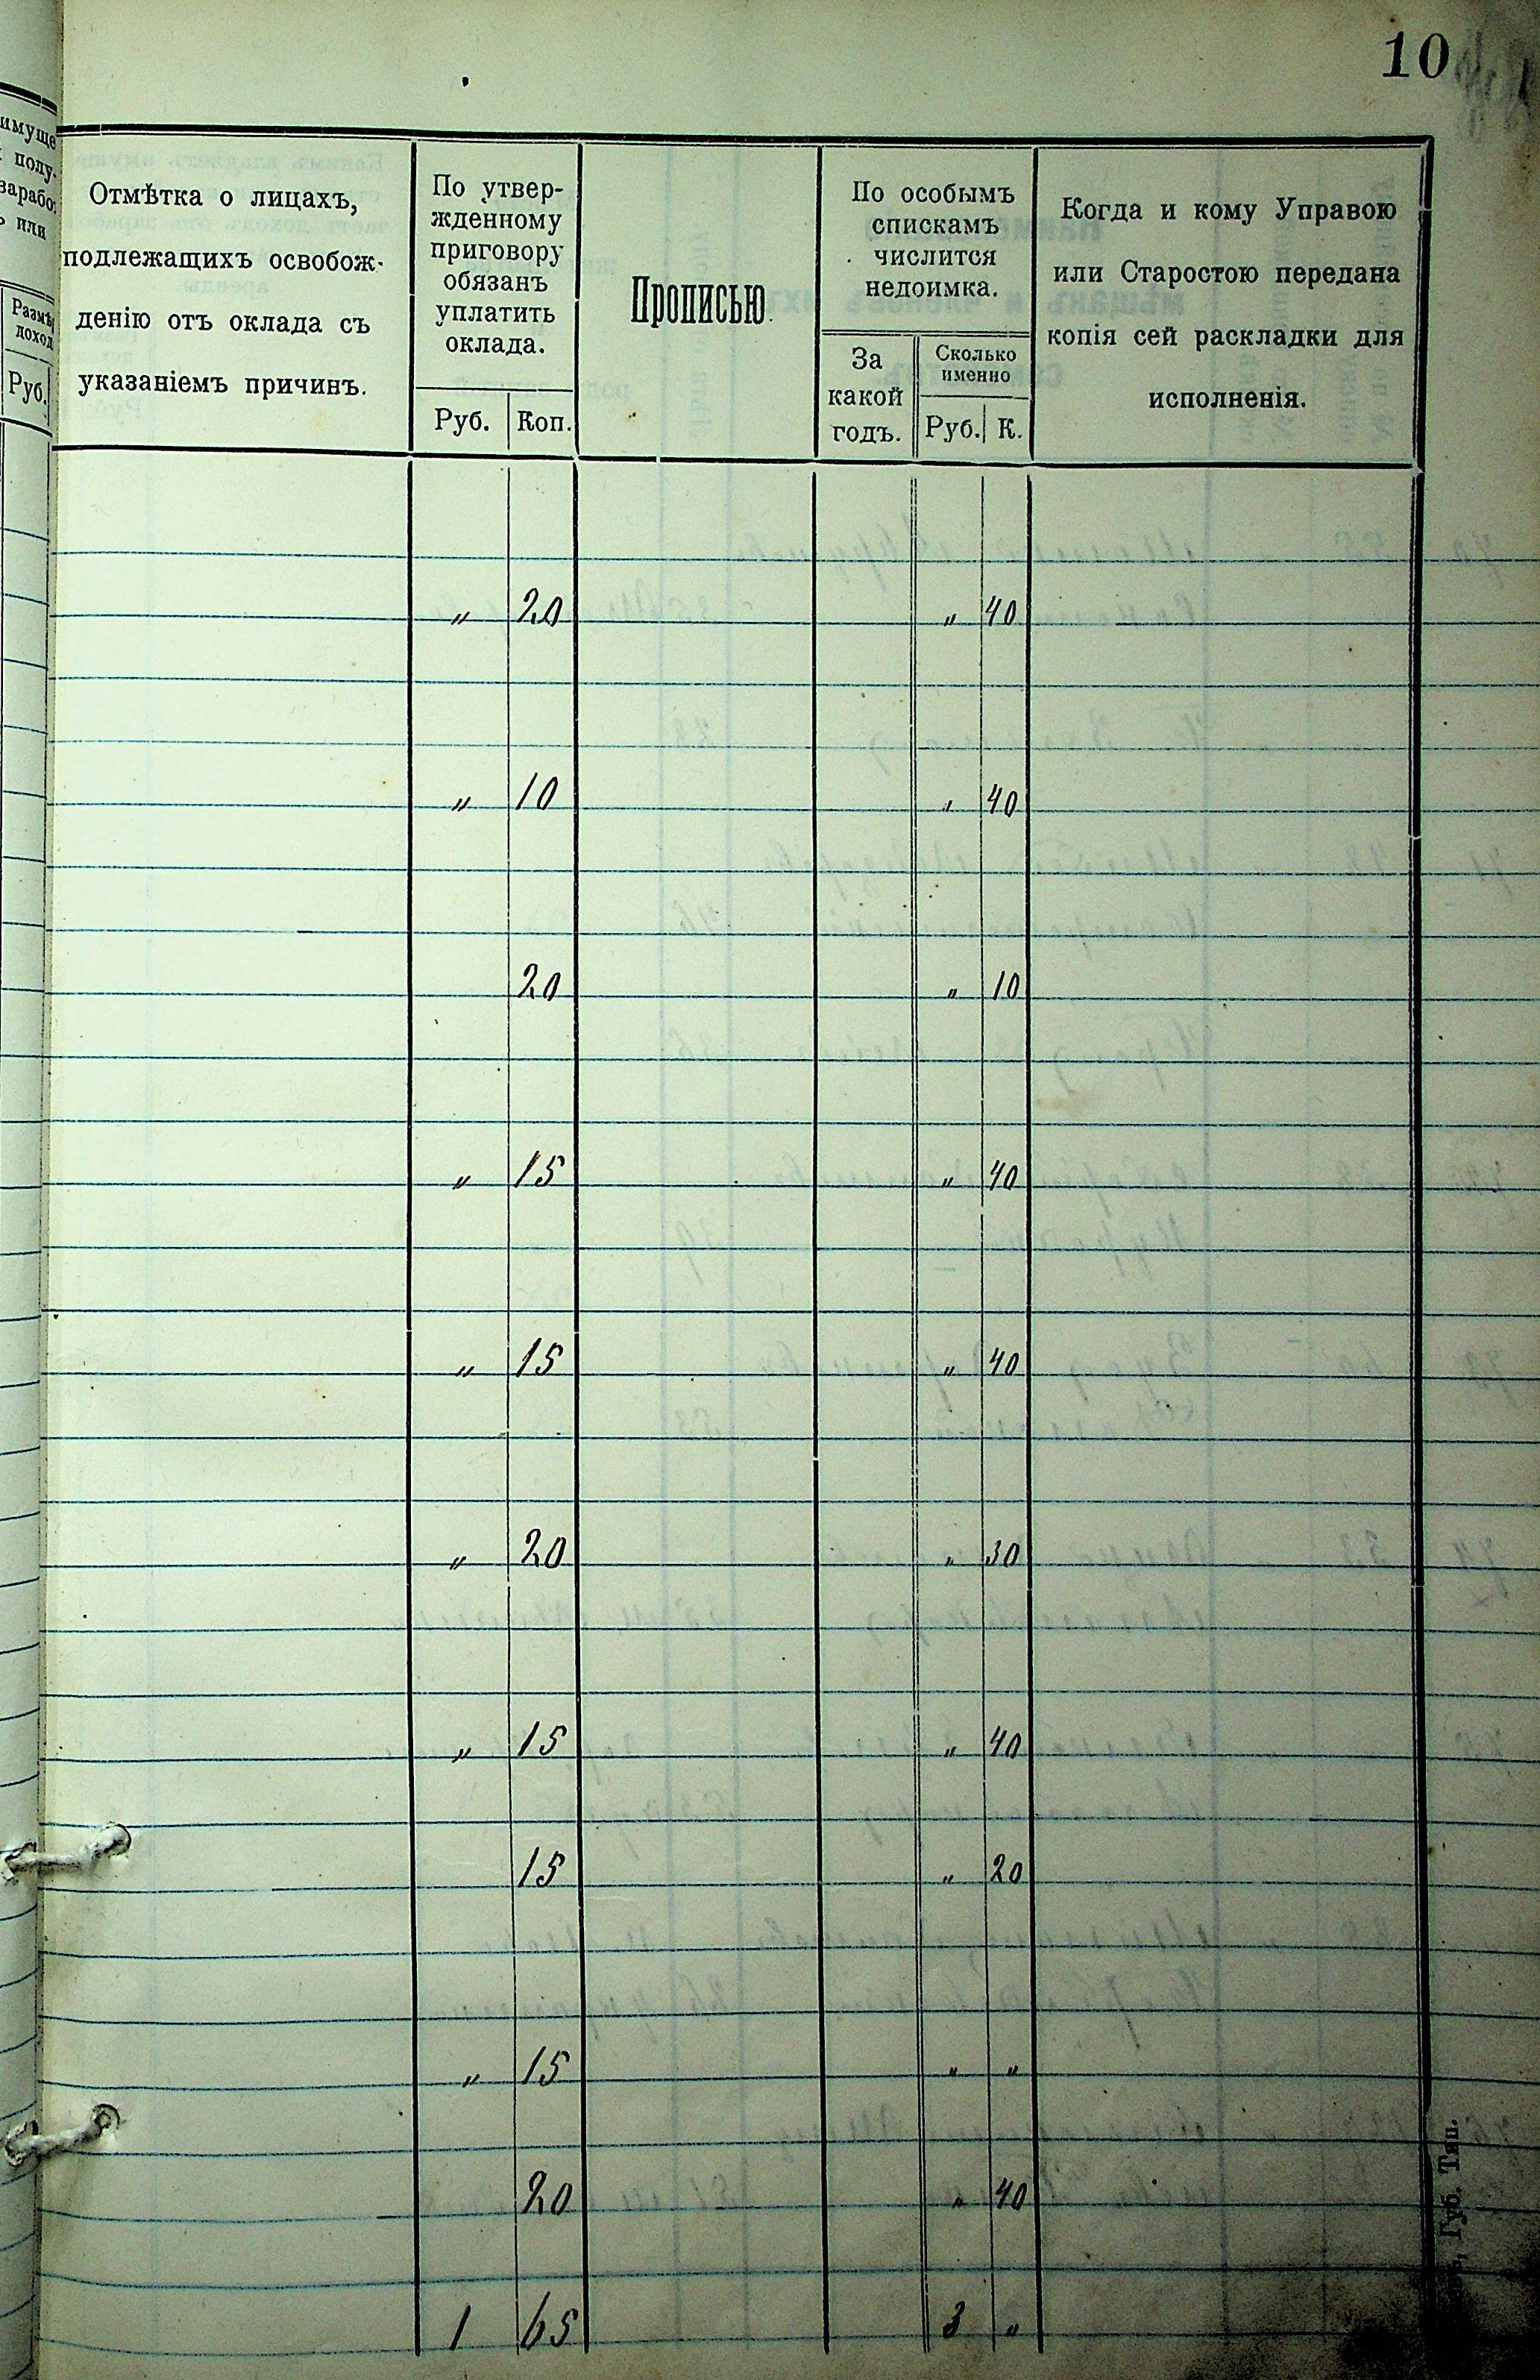 10
имуще
полу-
зарабо-
или
Размѣ
доход
Руб.
Отмѣтка о лицахъ,
подлежащихъ освобож-
денію отъ оклада съ
указаніемъ причинъ.
По утвер-
жденному
приговору
обязанъ
уплатить
оклада.
Руб. Коп.
Прописью.
По особымъ
спискамъ
числится
недоимка.
За
какой
годъ.
Сколько
именно
Руб. К.
Когда и кому Управою
или Старостою передана
копія сей раскладки для
исполненія.
" 20 " 40
" 10 " 40
20 " 10
" 15 " 40
" 15 " 40
" 20 " 30
" 15 " 40
15 " 20
" 15 " "
20 " 40
1 65 3 "
Губ. Тип.